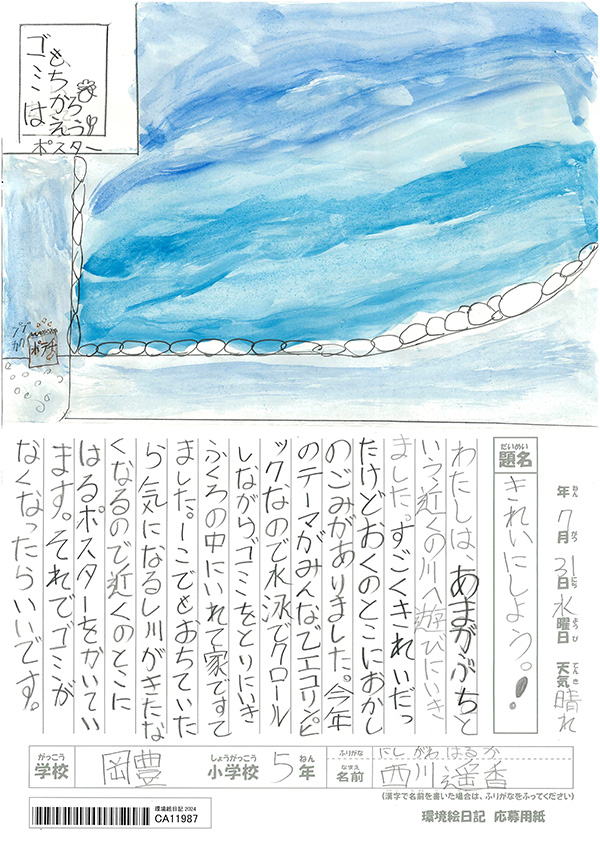 ゴミは
もちかえろう
ポスター
ポテチ
年ねん 7月がつ 31日にち 水曜日ようび 天気てんき 晴れ
題名だいめい
きれいにしよう。!
わたしは、あまがぶちと
いって近くの川へ遊びにいき
ました。すごくきれいだっ
たけどおくのとこにおかし
のごみがありました。今年
のテーマがみんなでエコリンピ
ックなので水泳でクロール
しながらゴミをとりにいき
ふくろの中にいれて家ですて
ました。一こでもおちていた
ら気になるし川がきたな
くなるので近くのとこに
はるポスターをかいてい
ます。それでゴミが
なくなったらいいです。
がっこう 学校 岡豊 しょうがっこう 小学校 5 ねん 年
ふりがな にしがわはるか
なまえ 名前 西川遥香
(漢字で名前を書いた場合は、ふりがなをふってください)
環境絵日記 2024
CA11987
環境絵日記 応募用紙